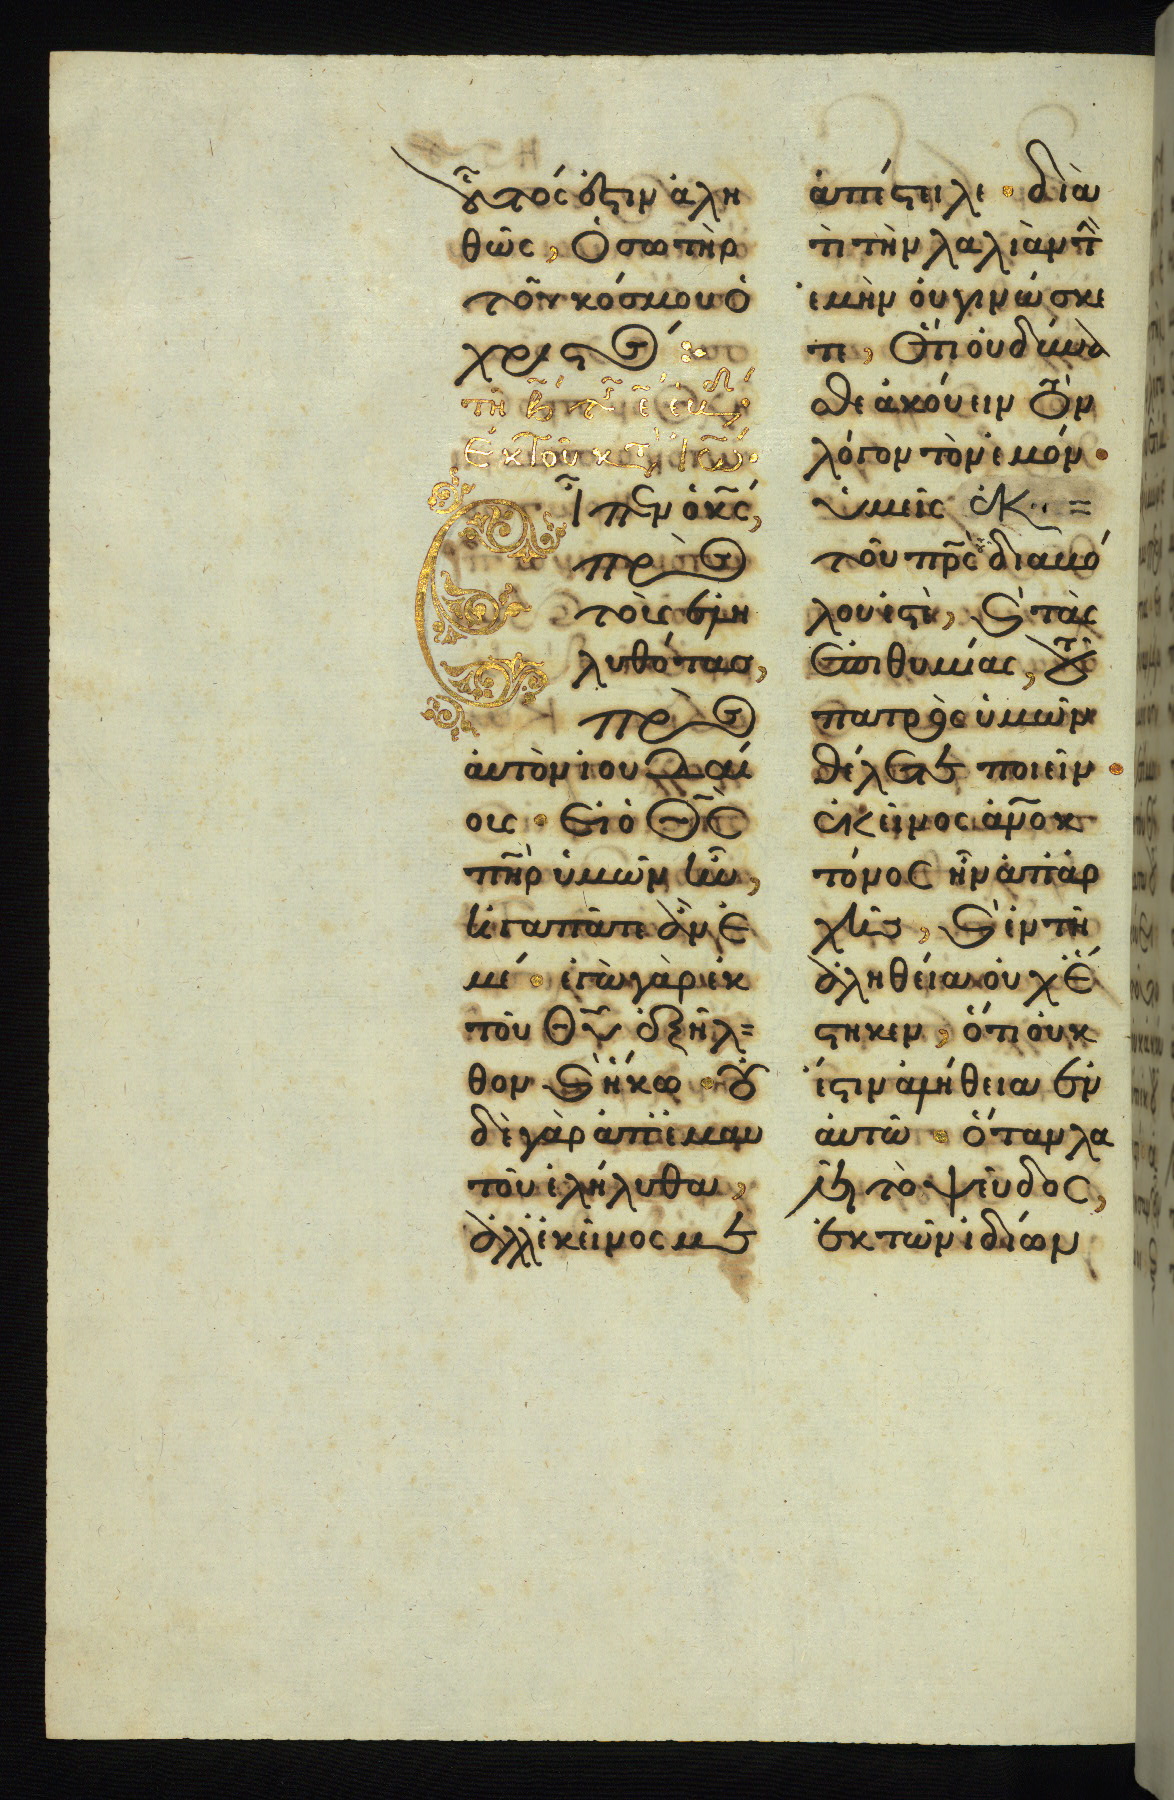 οὗτός ἐστιν ἀλη
θῶς, ὁ σωτὴρ
τοῦ κόσμου ὁ
χριστός
τῇ β τῆς ε ἑβδ
ἐκ τοῦ κατὰ Ἰω
Εἶπεν ὁ κ̅ς,
πρὸς
τοὺς ἐλη
λυθότας,
πρὸς
αὐτὸν ἰουδαί
ους· εἰ ὁ θ̅ς
π̅η̅ρ ὑμῶν ἦν,
ἠγαπᾶτε ἂν ἐ
μέ· ἐγὼ γὰρ ἐκ
τοῦ θ̅υ ἐξῆλ=
θον καὶ ἥκω· οὐ
δὲ γὰρ ἀπ' ἐμαυ
τοῦ ἐλήλυθα,
ἀλλ' ἐκεῖνός με
ἀπέστειλε· διὰ
τί τὴν λαλιὰν τὴν
ἐμὴν οὐ γινώσκε
τε, ὅτι οὐ δύνα
σθε ἀκούειν τὸν
λόγον τὸν ἐμόν·
ὑμεῖς ἐκ =
τοῦ π̅ρ̅ς διαβό
λου ἐστὲ, καὶ τὰς
ἐπιθυμίας, τοῦ
πατρὸς ὑμῶν
θέλετε ποιεῖν·
ἐκεῖνος ἀν̅οκ
τόνος ἦν ἀπ' ἀρ
χῆς, καὶ ἐν τῇ
ἀληθείᾳ οὐχ ἕ
στηκεν, ὅτι οὐκ
ἔστιν ἀλήθεια ἐν
αὐτῷ· ὅταν λα
λῇ τὸ ψεῦδος,
ἐκ τῶν ἰδίων